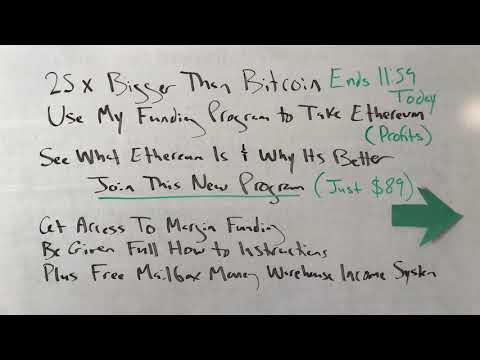 25 x Bigger Than Bitcoin Ends 11:59 Today
Use My Funding Program to Take Ethereum (Profits)
See What Ethereum Is & Why Its Better
Join This New Program (Just $89)
Get Access To Margin Funding
Be Given Full How to Instructions
Plus Free Mailbox Money Warehouse Income System